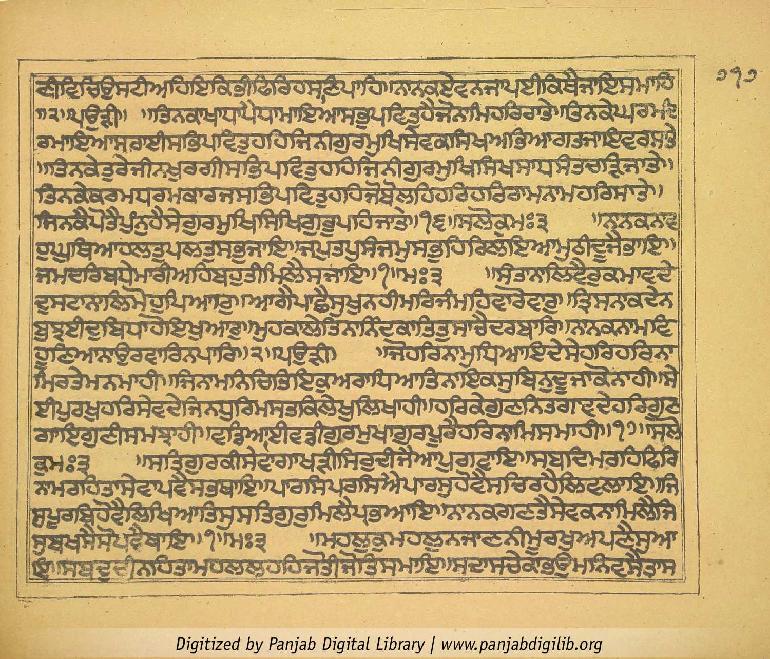 ਣੀਵਿਚਿਉਸਟੀਅਹਿਇਕਿਭੀਫਿਰਿਹਸਣਿਪਾਹਿ॥ਨਾਨਕਏਵਨਜਾਪਈਕਿਥੈਜਾਇਸਮਾਹਿ ੭੧੭
॥੨॥ਪਉੜੀ॥ ॥ਤਿਨਕਾਖਾਧਾਪੈਧਾਮਾਇਆਸਭੁਪਵਿਤੁਹੈਜੋਨਾਮਿਹਰਿਰਾਤੇ॥ਤਿਨਕੇਘਰਮੰਦ
ਰਮਾਇਆਸਰਾਈਸਭਿਪਵਿਤੁਹਹਿਜਿਨੀਗੁਰਮੁਖਿਸੇਵਕਸਿਖਅਭਿਆਗਤਜਾਇਵਰਸਤੇ
॥ਤਿਨਕੇਤੁਰੇਜੀਨਖੁਰਗੀਸਭਿਪਵਿਤੁਹਹਿਜਿਨੀਗੁਰਮੁਖਿਸਿਖਸਾਧਸੰਤਚੜਿਜਾਤੇ॥
ਤਿਨਕੇਕਰਮਧਰਮਕਾਰਜਸਭਿਪਵਿਤੁਹਹਿਜੋਬੋਲਹਿਹਰਿਹਰਿਰਾਮਨਾਮਹਰਿਸਾਤੇ॥
ਜਿਨਕੈਪੋਤੈਪੁੰਨੁਹੈਸੇਗੁਰਮੁਖਿਸਿਖਗੁਰੂਪਹਿਜਾਤੇ॥੧੬॥ਸਲੋਕੁਮਃ੩ ॥ਨਾਨਕਨਾਵ
ਹੁਘੁਥਿਆਹਲਤੁਪਲਤੁਸਭੁਜਾਇ॥ਜਪੁਤਪੁਸੰਜਮੁਸਭੁਹਿਰਿਲਇਆਮੁਠੀਦੂਜੈਭਾਇ॥
ਜਮਦਰਿਬਧੇਮਾਰੀਅਹਿਬਹੁਤੀਮਿਲੈਸਜਾਇ॥੧॥ਮਃ੩ ॥ਸੰਤਾਨਾਲਿਵੈਰੁਕਮਾਵਦੇ
ਦੁਸਟਨਾਲਿਮੋਹੁਪਿਆਰੁ॥ਆਗੈਪਾਛੈਸੁਖੁਨਹੀਮਰਿਜੰਮਹਿਵਾਰੋਵਾਰ॥ਤ੍ਰਿਸਨਾਕਦੇਨ
ਬੁਝਈਦੁਬਿਧਾਹੋਇਖੁਆਰੁ॥ਮੁਹਕਾਲੇਤਿਨਾਨਿੰਦਕਾਤਿਤੁਸਚੈਦਰਬਾਰਿ॥ਨਾਨਕਨਾਮਵਿ
ਹੂਣਿਆਨਾਉਰਵਾਰਿਨਪਾਰਿ॥੨॥ਪਉੜੀ ॥ਜੋਹਰਿਨਾਮੁਧਿਆਇਦੇਸੇਹਰਿਹਰਿਨਾ
ਮਿਰਤੇਮਨਮਾਹੀ॥ਜਿਨਾਮਨਿਚਿਤਿਇਕੁਅਰਾਧਿਆਤਿਨਾਇਕਸਬਿਨੁਦੂਜਾਕੋਨਾਹੀ॥ਸੇ
ਈਪੁਰਖਹਰਿਸੇਵਦੇਜਿਨਧੁਰਿਮਸਤਕਿਲੇਖੁਲਿਖਾਹੀ॥ਹਰਿਕੇਗੁਣਨਿਤਗਾਵਦੇਹਰਿਗੁਣ
ਗਾਇਗੁਣੀਸਮਝਾਹੀ॥ਵਡਿਆਈਵਡੀਗੁਰਮੁਖਾਗੁਰਪੂਰੈਹਰਿਨਾਮਿਸਮਾਹੀ॥੧੭॥ਸਲੋ
ਕੁਮਃ੩ ॥ਸਤਿਗੁਰਕੀਸੇਵਾਗਾਖੜੀਸਿਰੁਦੀਜੈਆਪੁਗਵਾਇ॥ਸਬਦਿਮਰਹਿਫਿਰਿ
ਨਾਮਰਹਿਤਾਸੇਵਾਪਵੈਸਭਥਾਇ॥ਪਾਰਸਪਰਸਿਐਪਾਰਸੁਹੋਵੈਸਚਿਰਹੈਲਿਵਲਾਇ॥ਜਿ
ਸੁਪੂਰਬਿਹੋਵੈਲਿਖਿਆਤਿਸੁਸਤਿਗੁਰੁਮਿਲੈਪ੍ਰਭੁਆਇ॥ਨਾਨਕਗਣਤੈਸੇਵਕੁਨਾਮਿਲੈਜਿ
ਸੁਬਖਸੇਸੋਪਵੈਥਾਇ॥੧॥ਮਃ੩ ॥ਮਹਲੁਕੁਮਹਲੁਨਜਾਣਨੀਮੂਰਖਅਪਣੈਸੁਆ
ਇ॥ਸਬਦੁਚੀਨਹਿਤਾਮਹਲੁਲਹਹਿਜੋਤੀਜੋਤਿਸਮਾਇ॥ਸਦਾਸਚੇਕਾਭਉਮਨਿਵਸੈਤਾਸ
Digitized by Panjab Digital Library | www.panjabdigilib.org